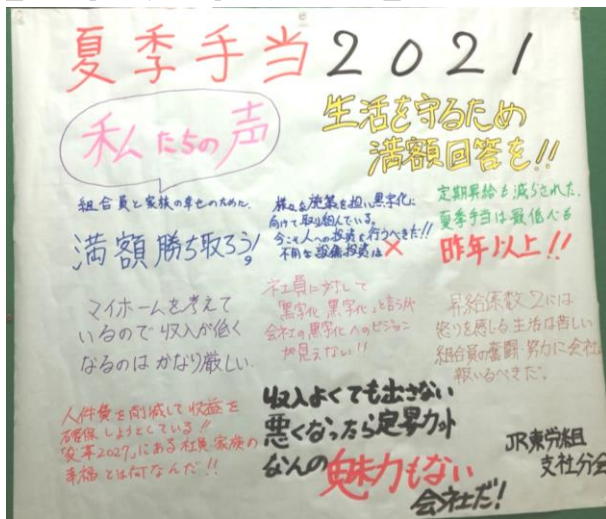 夏季手当2021
私たちの声
生活を守るため
満額回答を!!
組合員と家族の幸せのために、
満額勝ち取ろう!
様々な施策を担い黒字化に
向けて取り組んでいる。
今こそ人への投資を行うべきだ!!
不用な設備投資は×
定期昇給も減らされた。
夏季手当は最低でも
昨年以上!!
マイホームを考えて
いるので収入が低く
なるのはかなり厳しい。
社員に対して
黒字化、黒字化、と言うが
会社の黒字化へのビジョン
が見えない!!
昇給係数2には
怒りを感じる生活は苦しい
組合員の奮闘・努力に会社は
報いるべきだ。
人件費を削減して収益を
確保しようとしている!!
「変革2027」にある社員・家族の
幸福とは何なんだ!!
収入よくても出さない
悪くなったら定昇カット
なんの魅力もない
会社だ!
JR東労組
支社分会